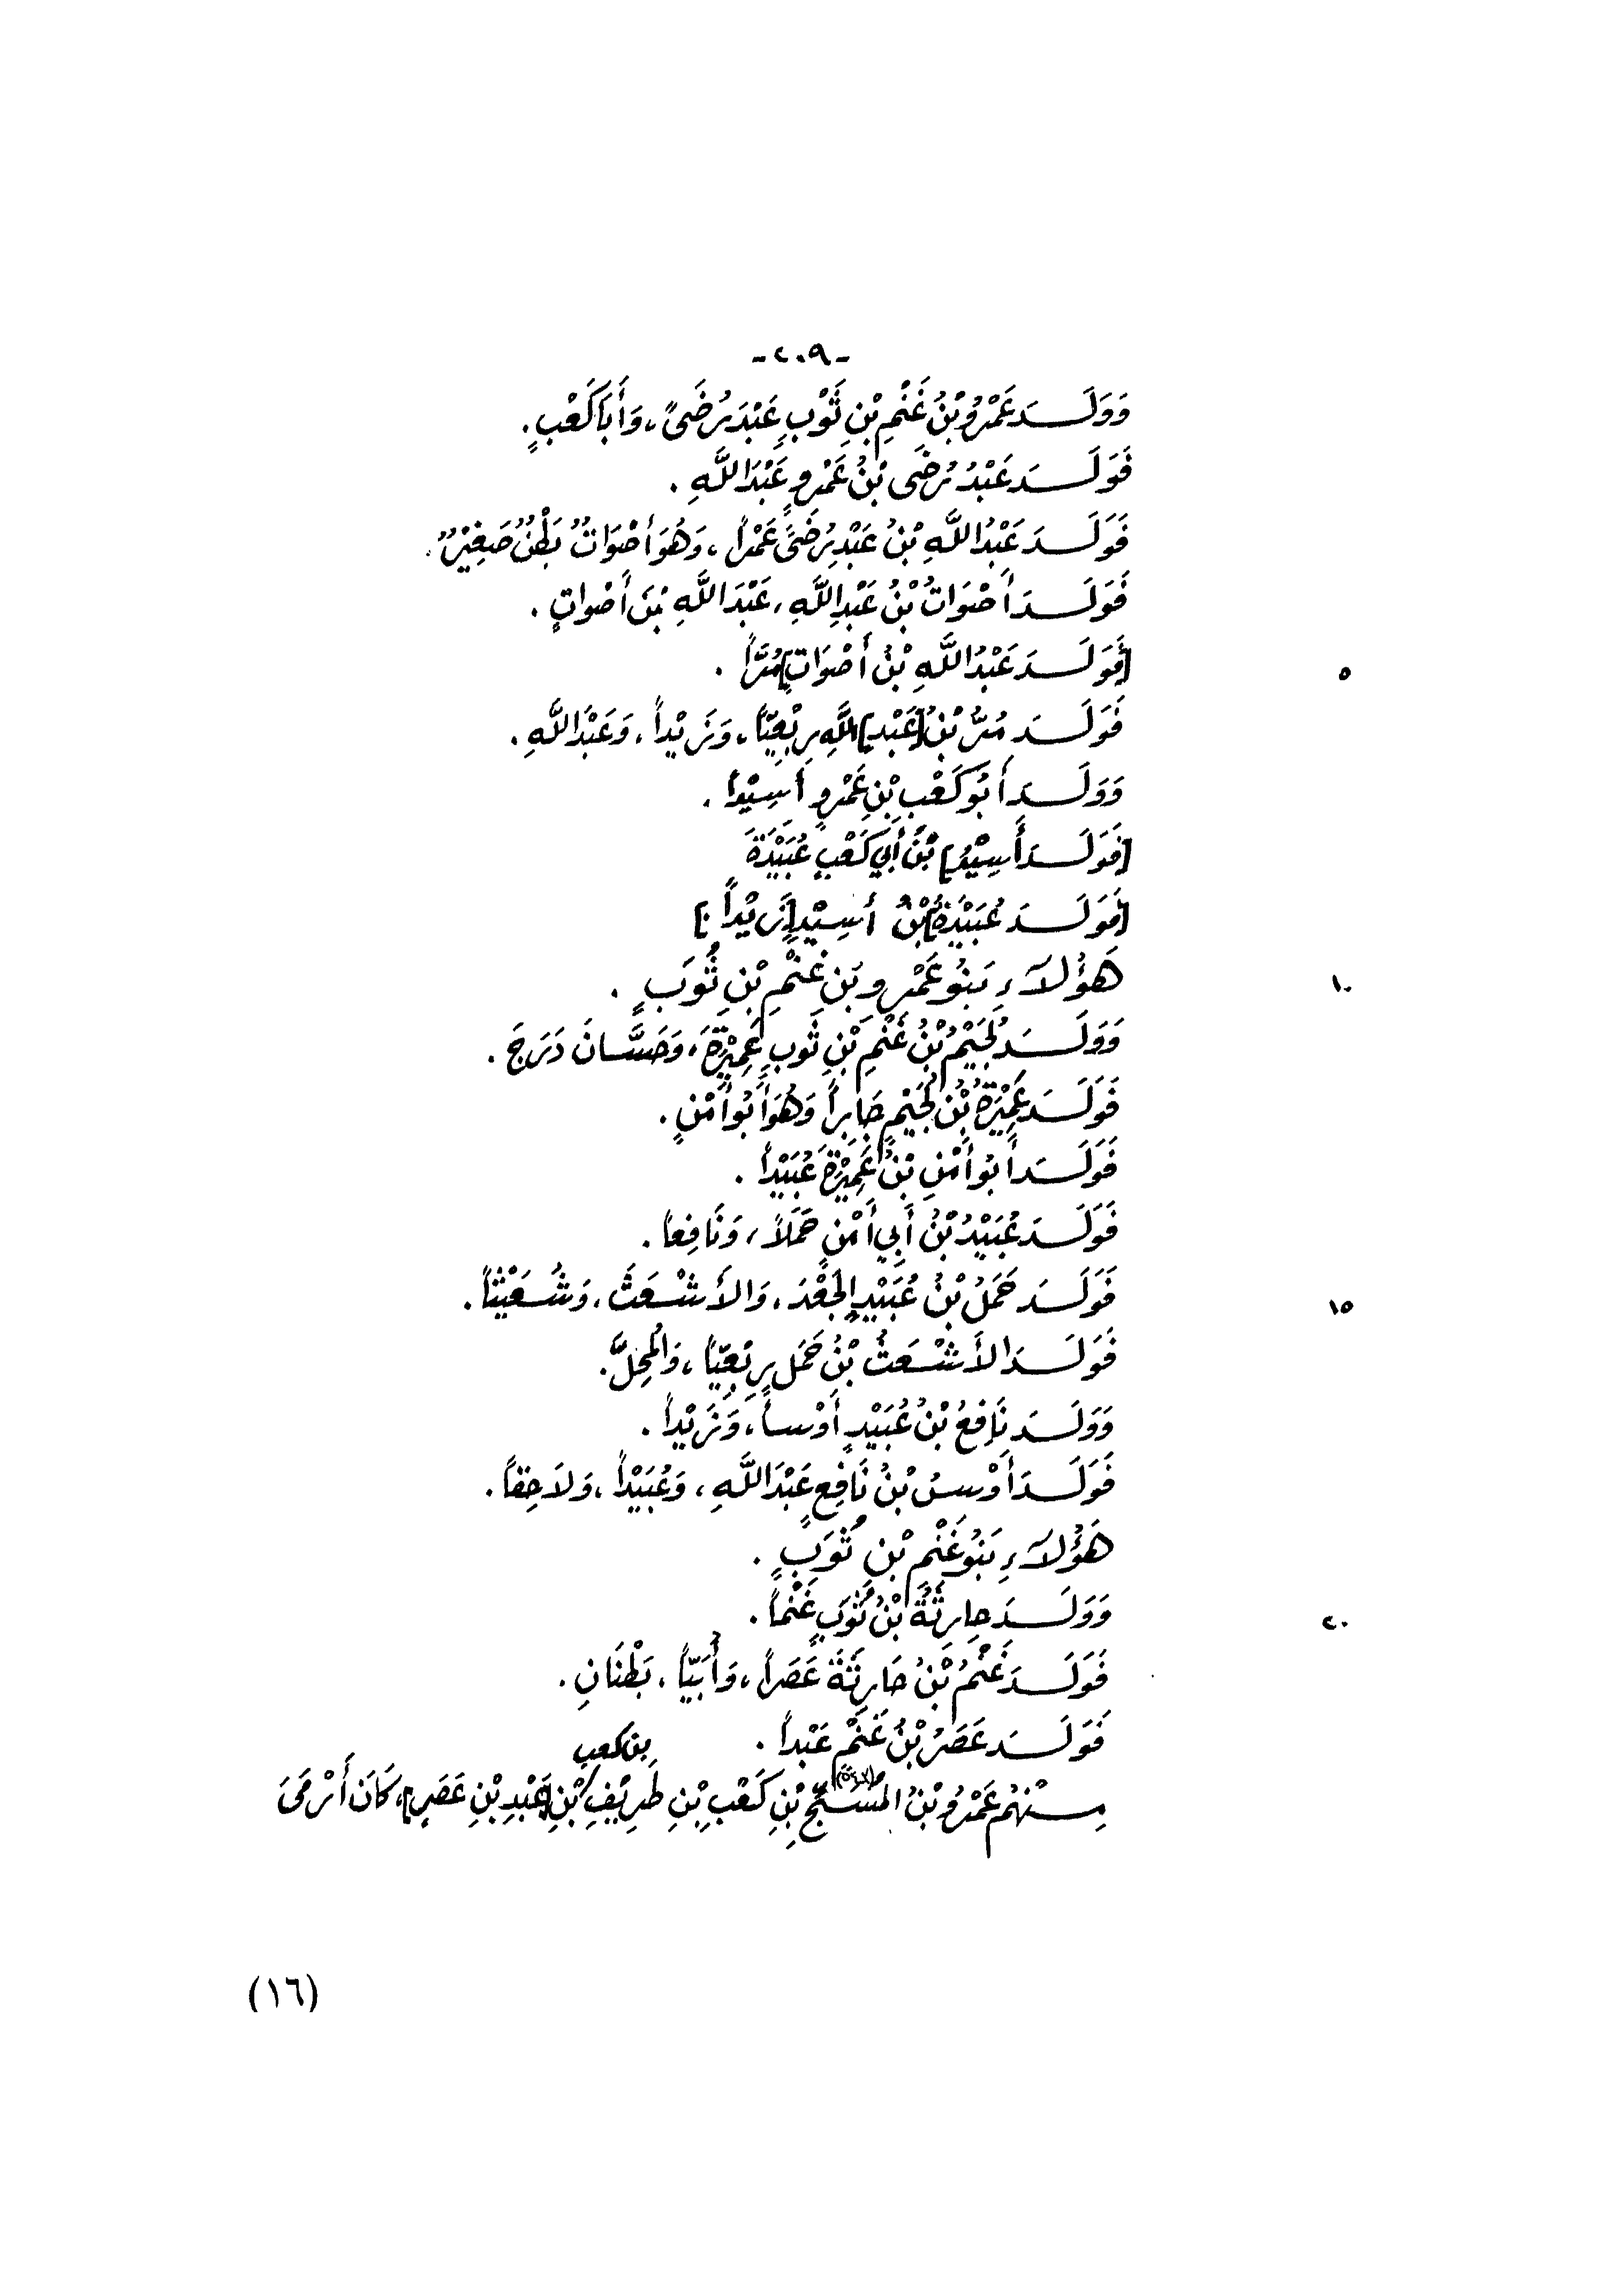 -٢٠٩-
وَوَلَـدَ عَمْرُو بْنُ غَنْمِ بْنِ ثُوَبٍ عَبْدَ رُضَىً، وَأَبَا كَعْبٍ.
فَوَلَـدَ عَبْدُ رُضَى بْنُ عَمْرٍو عَبْدَ اللَّهِ.
فَوَلَـدَ عَبْدُ اللَّهِ بْنُ عَبْدِ رُضَىً عَمْراً، وَهُوَ أَصْوَاتٌ بَطْنٌ صَغِيْرٌ.
فَوَلَـدَ أَصْوَاتُ بْنُ عَبْدِ اللَّهِ، عَبْدَ اللَّهِ بْنَ أَصْوَاتٍ.
[فَوَلَـدَ عَبْدُ اللَّهِ بْنُ أَصْوَاتٍ] مُرَّاً.
٥
فَوَلَـدَ مُرُّ بْنُ [عَبْدِ] اللَّهِ رِبْعِيّاً، وَزَيْداً، وَعَبْدَ اللَّهِ.
وَوَلَـدَ أَبُو كَعْبِ بْنِ عَمْرٍو أَسِيْداً.
[فَوَلَـدَ أَسِيْدُ] بْنُ أَبِي كَعْبٍ عُبَيْدَةَ
[فَوَلَـدَ عُبَيْدَةُ] بْنُ أَسِيْدٍ [زَيْداً.]
هَؤُلَآءِ بَنُو عَمْرِو بْنِ غَنْمِ بْنِ ثُوَبٍ.
١٠
وَوَلَـدَ لُجَيْمُ بْنُ غَنْمِ بْنِ ثُوَبٍ عَمِيْرَةَ، وَحَسَّانَ دَرَجَ.
فَوَلَـدَ عَمِيْرَةُ بْنُ لُجَيْمٍ جَابِراً وَهُوَ أَبُو أَمْنٍ.
فَوَلَـدَ أَبُو أَمْنِ بْنُ عَمِيْرَةَ عُبَيْداً.
فَوَلَـدَ عُبَيْدُ بْنُ أَبِي أَمْنٍ حَمَلاً، وَنَافِعاً.
فَوَلَـدَ حَمَلُ بْنُ عُبَيْدٍ الجَعْدَ، وَالأَشْعَثَ، وَشُعَيْثاً.
١٥
فَوَلَـدَ الأَشْعَثُ بْنُ حَمَلٍ رِبْعِيّاً، وَالمُحِلَّ.
وَوَلَـدَ نَافِعُ بْنُ عُبَيْدٍ أَوْساً، وَزَيْداً.
فَوَلَـدَ أَوْسُ بْنُ نَافِعٍ عَبْدَ اللَّهِ، وَعُبَيْداً، وَلَاحِقاً.
هَؤُلَآءِ بَنُو غَنْمِ بْنِ ثُوَبٍ.
وَوَلَـدَ حَارِثَةُ بْنُ ثُوَبٍ غَنْماً.
٢٠
فَوَلَـدَ غَنْمُ بْنُ حَارِثَةَ عَصَراً، وَأُبَيّاً، بَطْنَانِ.
فَوَلَـدَ عَصَرُ بْنُ غَنْمٍ عَبْداً.
بن كعب
مِـنْهُم عَمْرُو بْنُ المُسَبِّحِ بْنِ كَعْبِ بْنِ طَرِيْفِ بْنِ [عَبْدِ بْنِ عَصَرٍ]، كَانَ أَرْمَى
(١٦)